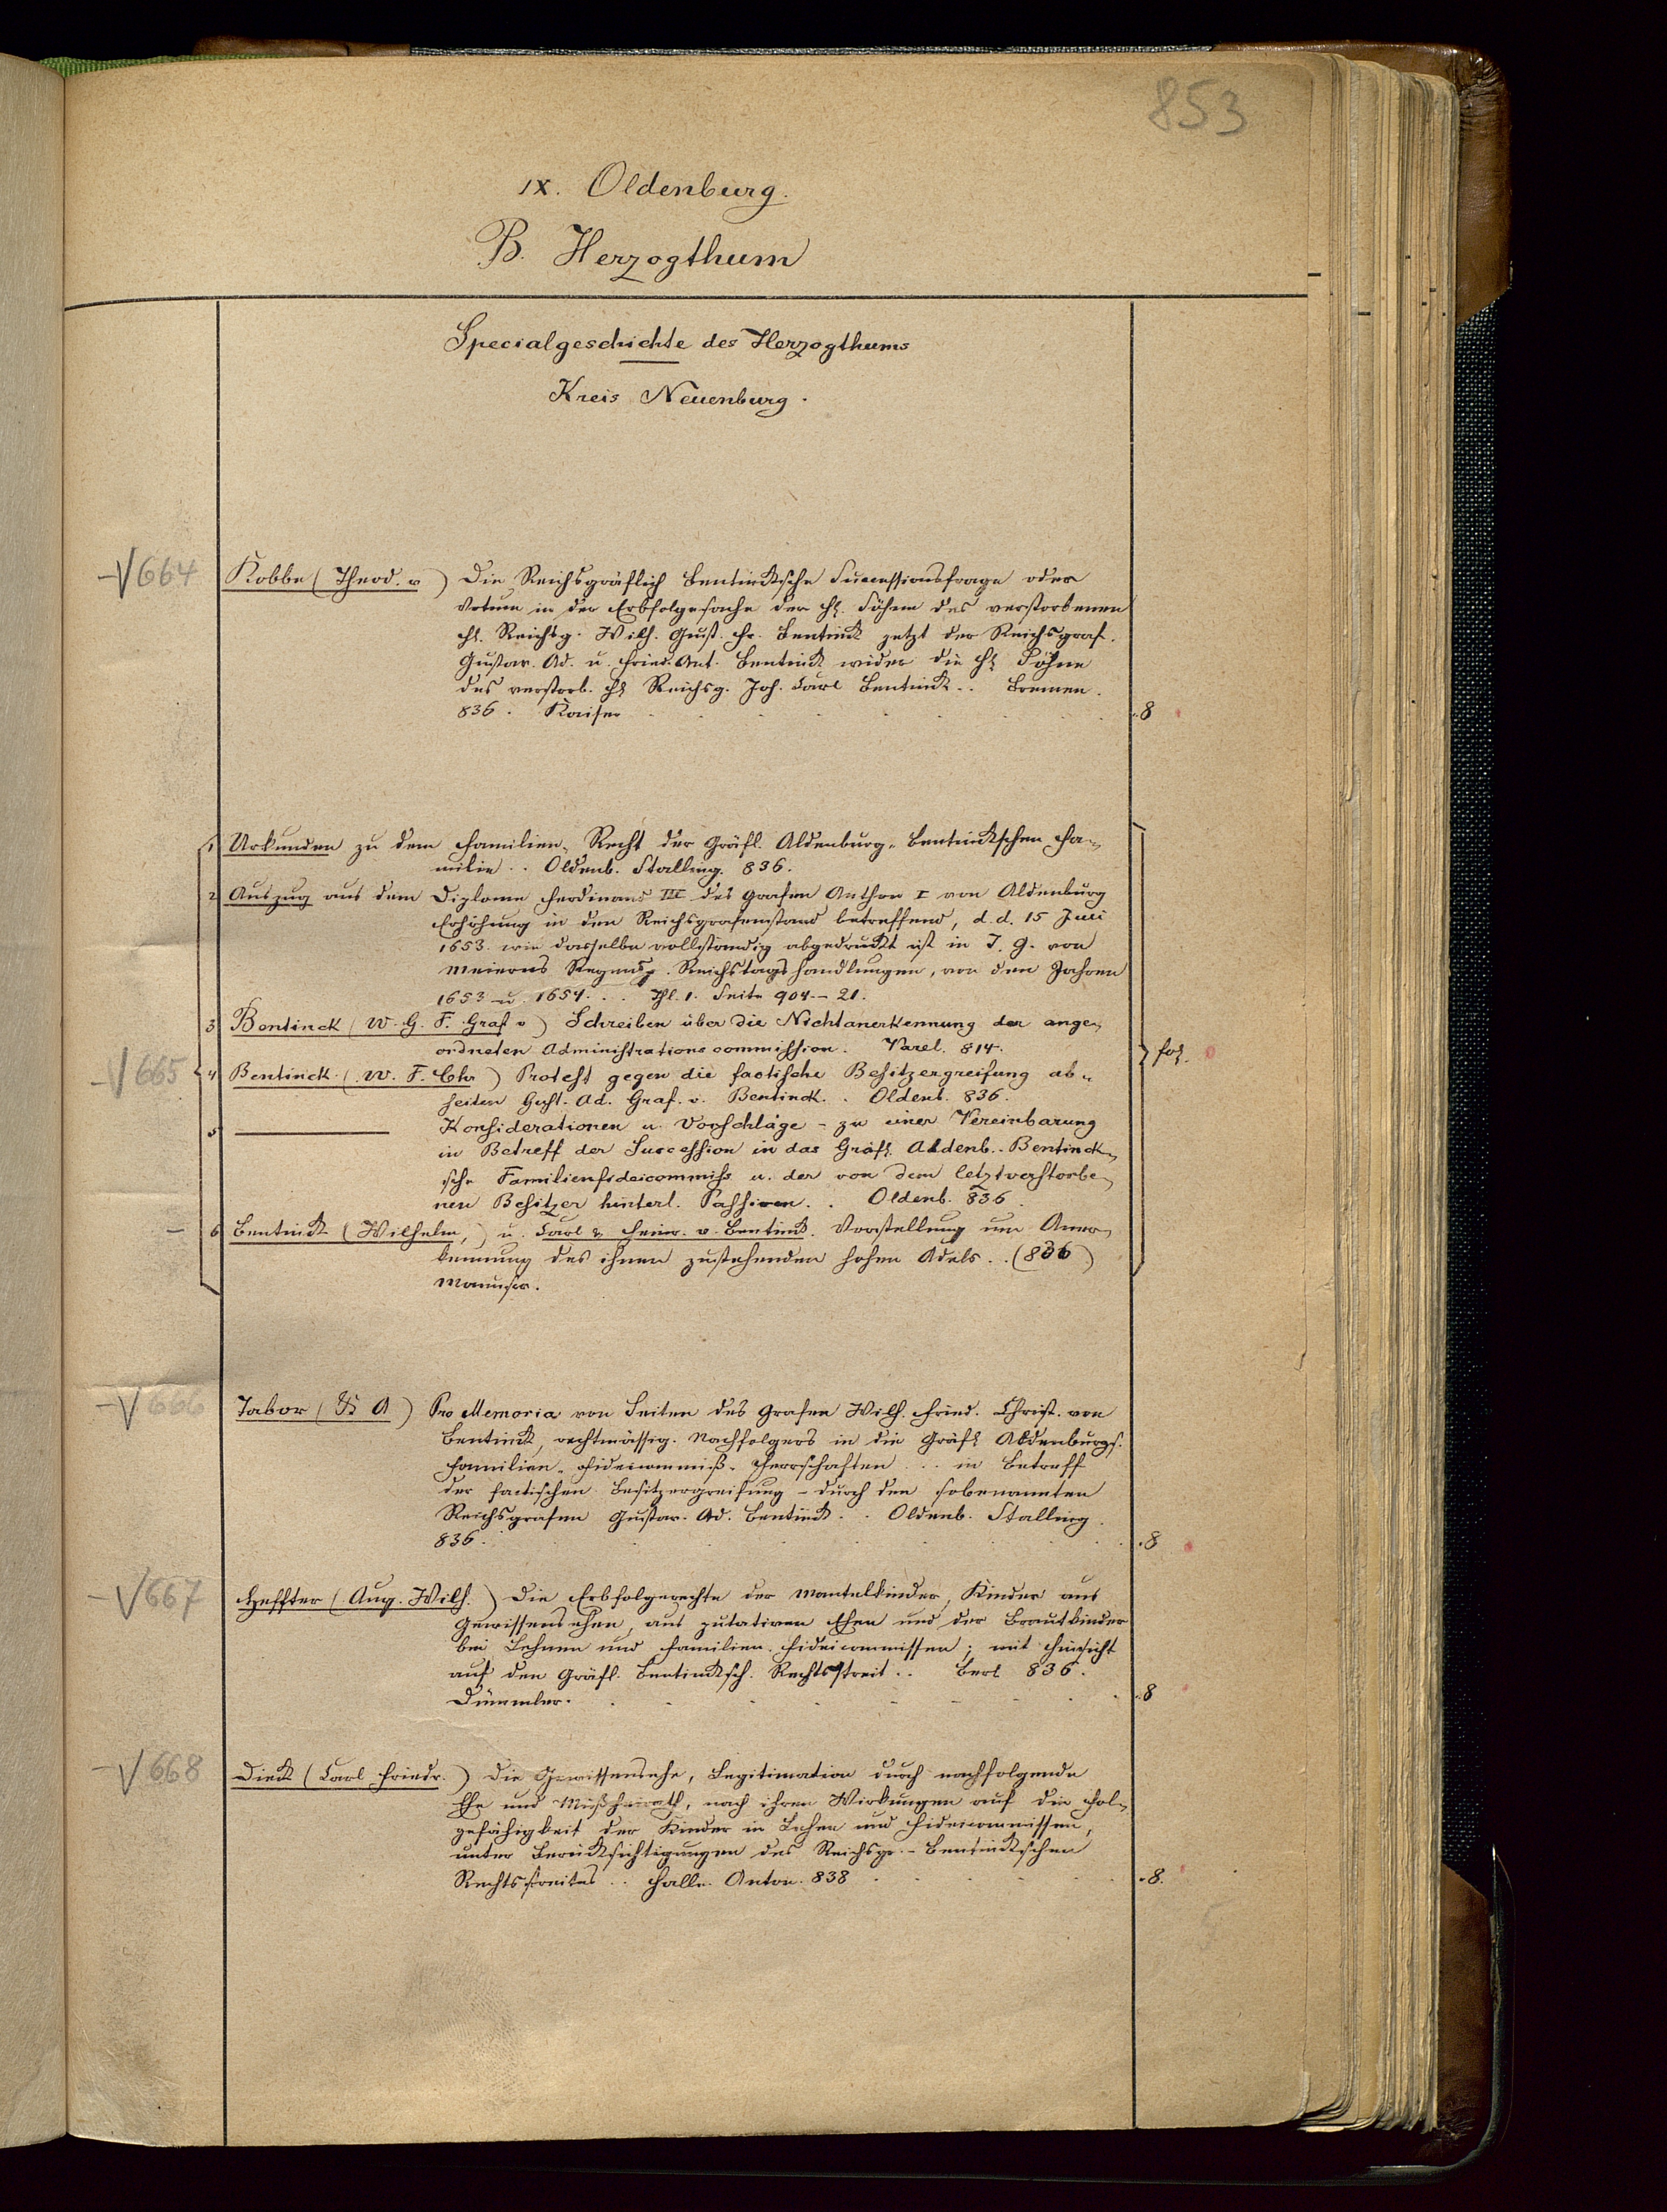 853
IX. Oldenburg.
B. Herzogthum
Specialgeschichte des Herzogthums
Kreis Neuenburg.
664 Kobbe (Theod. v) Die Reichsgräflich Bentincksche Successionsfrage oder
Votum in der Erbfolgesache der H. Söhne des verstorbenen
H. Reichsg. Wilh. Gust. Fr. Bentinck jetzt der Reichsgraf.
Gustav. Ad. u. Fried. Ant. Bentinck wider die H. Söhne
des verstorb. H. Reichsg. Joh. Carl Bentinck.. Bremen.
836. Kaiser 8
1 Urkunden zu dem Familien-Recht der Gräfl. Aldenburg-Bentinckschen Fa-
milie.. Oldenb. Stalling. 836.
2 Auszug aus dem Diplome Ferdinand III des Grafen Anthon I von Aldenburg
Erhöhung in den Reichsgrafenstand betreffend, d. d. 15 Juli
1653. wie dasselbe vollständig abgedruckt ist in J. G. von
Meierns Regensp. Reichstagshandlungen, von den Jahren
1653 u. 1654... Thl. 1. Seite 904-21.
3 Bentinck (W. G. F. Graf v) Schreiben über die Nichtanerkennung der ange-
ordneten Administrationscommission. Varel. 814.
665 4 Bentinck (W. F. Chr) Protest gegen die factische Besitzergreifung ab-
seiten Gust. Ad. Graf. v. Bentinck.. Oldenb. 836.
fol.
5 ——— Konsiderationen u. Vorschläge - zu einer Vereinbarung
in Betreff der Succession in das Gräfl. Aldenb.-Bentinck-
sche Familienfideicommiss u. der von dem letztverstorbe-
nen Besitzer hinterl. Passiven.. Oldenb. 836.
6 Bentinck (Wilhelm,) u. Carl & Heinr. v. Bentinck. Vorstellung um Aner-
kennung des ihnen zustehenden hohen Adels.. (836)
Manuscr.
666 Tabor (A) Pro Memoria von Seiten des Grafen Wilh. Fried. Christ. von
Bentinck, rechtmässig. Nachfolgers in die Gräfl. Aldenburgs.
Familien-Fideicommiß-Herrschaften... in Betreff
der factischen Besitzergreifung - durch den sobenannten
Reichsgrafen Gustav. Ad. Bentinck.. Oldenb. Stalling.
836. 8
667 Heffter (Aug. Wilh.) Die Erbfolgerechte der Mantelkinder, Kinder aus
Gewissensehen, aus putativen Ehen und der Brautkinder
bei Lehnen und Familien Fideicommissen; mit Hinsicht
auf den Gräfl. Bentincksch. Rechtsstreit.. Berl. 836.
Dümmler. 8
668 Dieck (Carl Friedr.) Die Gewissensehe, Legitimation durch nachfolgende
Ehe und Mißheirath, nach ihren Wirkungen auf die Fol-
gefähigkeit der Kinder in Lehen und Fideicommissen,
unter Berücksichtigungen des Reichsgr.-Bentinckschen
Rechtsstreites.. Halle. Anton. 838 8.